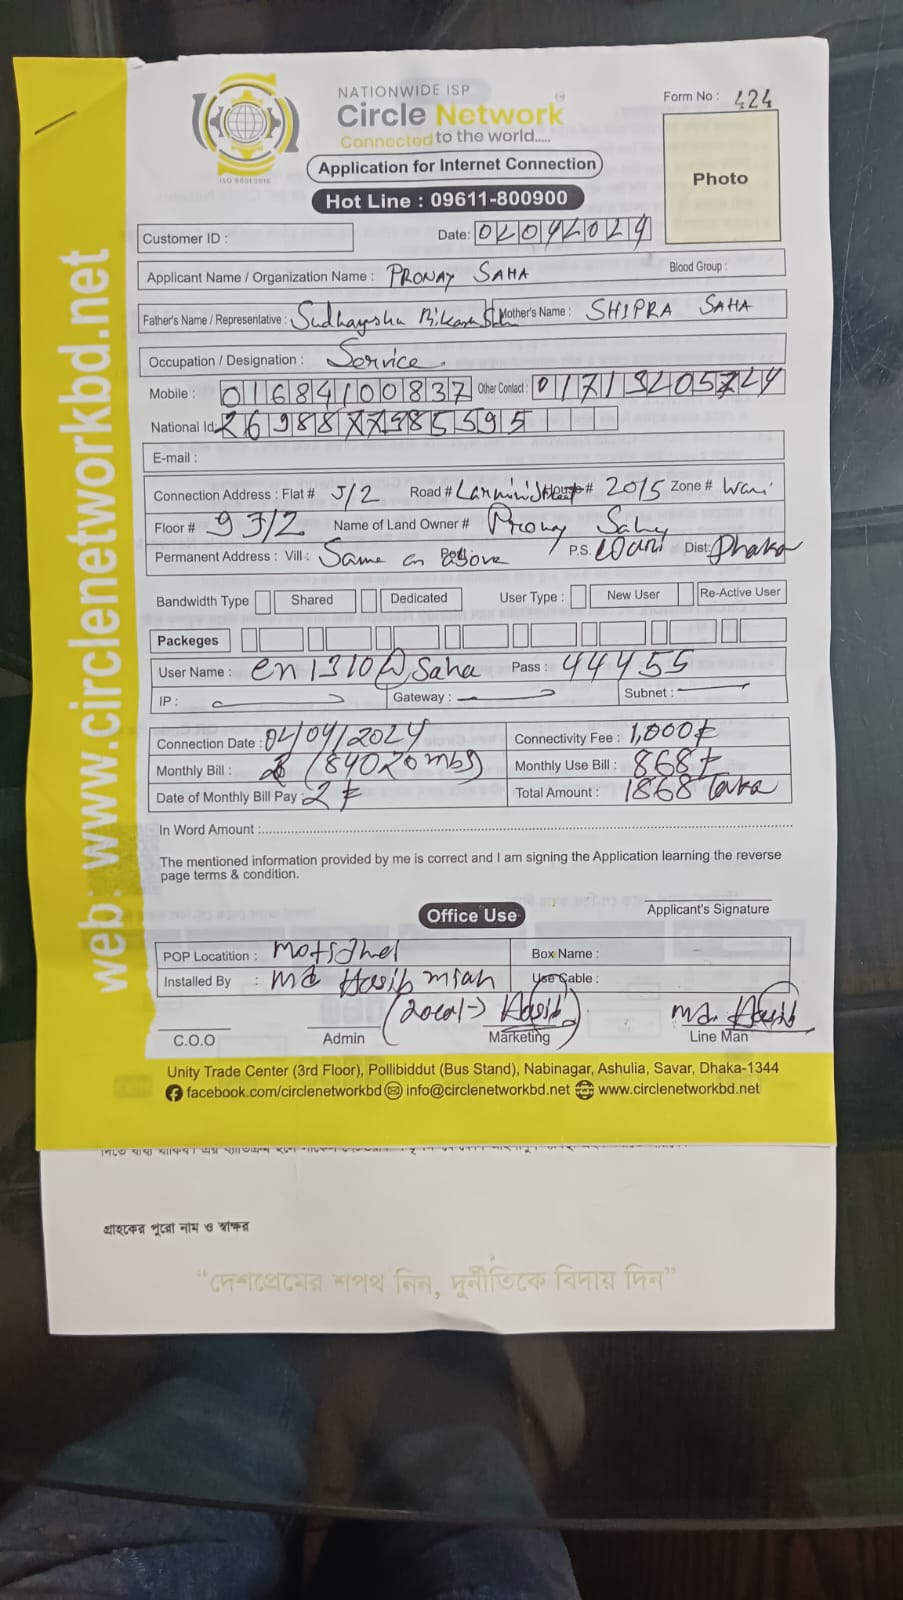 web: www.circlenetworkbd.net
NATIONWIDE ISP
Circle Network
Connected to the world.....
ISO 9001:2015
Form No : 424
Application for Internet Connection
Photo
Hot Line : 09611-800900
Customer ID :
Date:
Applicant Name / Organization Name : PRONAY SAHA Blood Group :
Father's Name / Representative : Mother's Name : SHIPRA SAHA
Occupation / Designation : Service
Mobile : 01684100837 Other Contact :
National Id:
E-mail :
Connection Address : Flat # J/2 Road # House# 2015 Zone # Wari
Floor # 9 J/2 Name of Land Owner # Pronay Saha
Permanent Address : Vill : Same as above P.S. Wari Dist: Dhaka
Bandwidth Type Shared Dedicated User Type : New User Re-Active User
Packeges
User Name : Pass : 44455
IP : Gateway : Subnet :
Connection Date : Connectivity Fee : 1,000৳
Monthly Bill : Monthly Use Bill : 868৳
Date of Monthly Bill Pay : Total Amount : 1868 Taka
In Word Amount :
The mentioned information provided by me is correct and I am signing the Application learning the reverse
page terms & condition.
Applicant's Signature
Office Use
POP Locatition : Motijhel Box Name :
Installed By : Md Hasib miah Use Cable :
Hasib Md. Hasib
C.O.O Admin Marketing Line Man
Unity Trade Center (3rd Floor), Pollibiddut (Bus Stand), Nabinagar, Ashulia, Savar, Dhaka-1344
facebook.com/circlenetworkbd info@circlenetworkbd.net www.circlenetworkbd.net
গ্রাহকের পুরো নাম ও স্বাক্ষর
“দেশপ্রেমের শপথ নিন, দুর্নীতিকে বিদায় দিন”